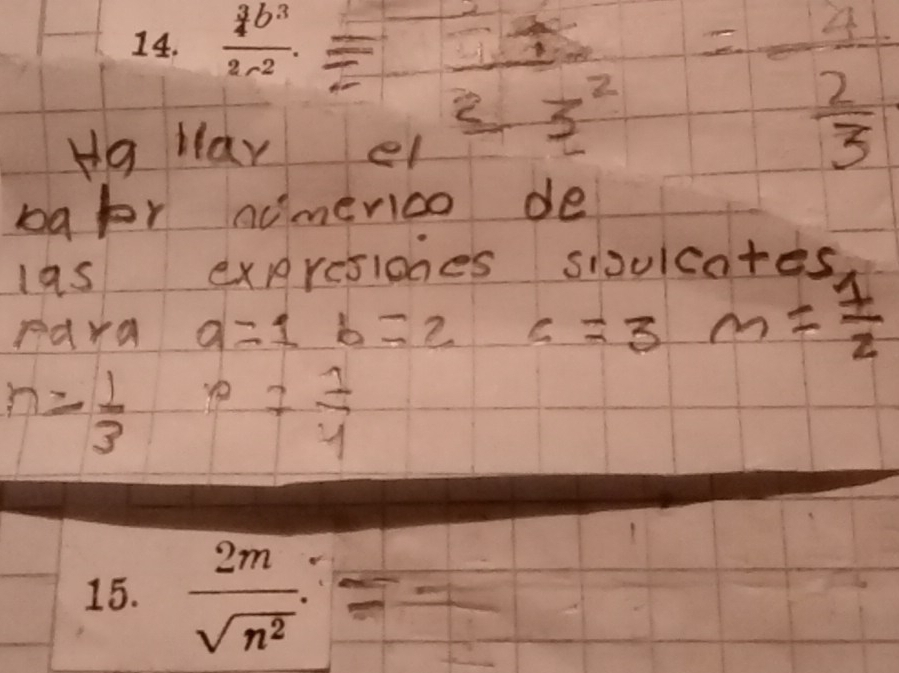 14. 3/4 b³ / 2 2.
3 3²
4
2/3
Ha llar el
balor númerico de
las expresiones siguientes,
para a=1 b=2 c=3 m=1/2
n=1/3 p=1/4
15. 2m / √n². =